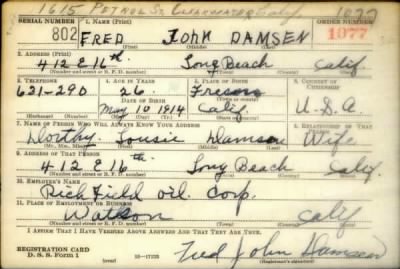 1615 Petrol St. Clearwater Calif. 1077
SERIAL NUMBER 1. NAME (Print) ORDER NUMBER
802 FRED JOHN DAMSEN 1077
(First) (Middle) (Last)
2. ADDRESS (Print)
412 E 16th Long Beach Calif
(Number and street or R. F. D. number) (Town) (County) (State)
3. TELEPHONE 4. AGE IN YEARS 5. PLACE OF BIRTH 6. COUNTRY OF CITIZENSHIP
631-290 26 Fresno
DATE OF BIRTH (Town or county)
May 10 1914 Calif U.S.A.
(Exchange) (Number) (Mo.) (Day) (Yr.) (State or country)
7. NAME OF PERSON WHO WILL ALWAYS KNOW YOUR ADDRESS 8. RELATIONSHIP OF THAT PERSON
Dorthy Lousie Damsen Wife
(Mr., Mrs., Miss) (First) (Middle) (Last)
9. ADDRESS OF THAT PERSON
412 E 16th Long Beach Calif.
(Number and street or R. F. D. number) (Town) (County) (State)
10. EMPLOYER'S NAME
Rich Field Oil Corp.
11. PLACE OF EMPLOYMENT OR BUSINESS
Watson Calif
(Number and street or R. F. D. number) (Town) (County) (State)
I AFFIRM THAT I HAVE VERIFIED ABOVE ANSWERS AND THAT THEY ARE TRUE.
REGISTRATION CARD
D. S. S. Form 1 Fred John Damsen